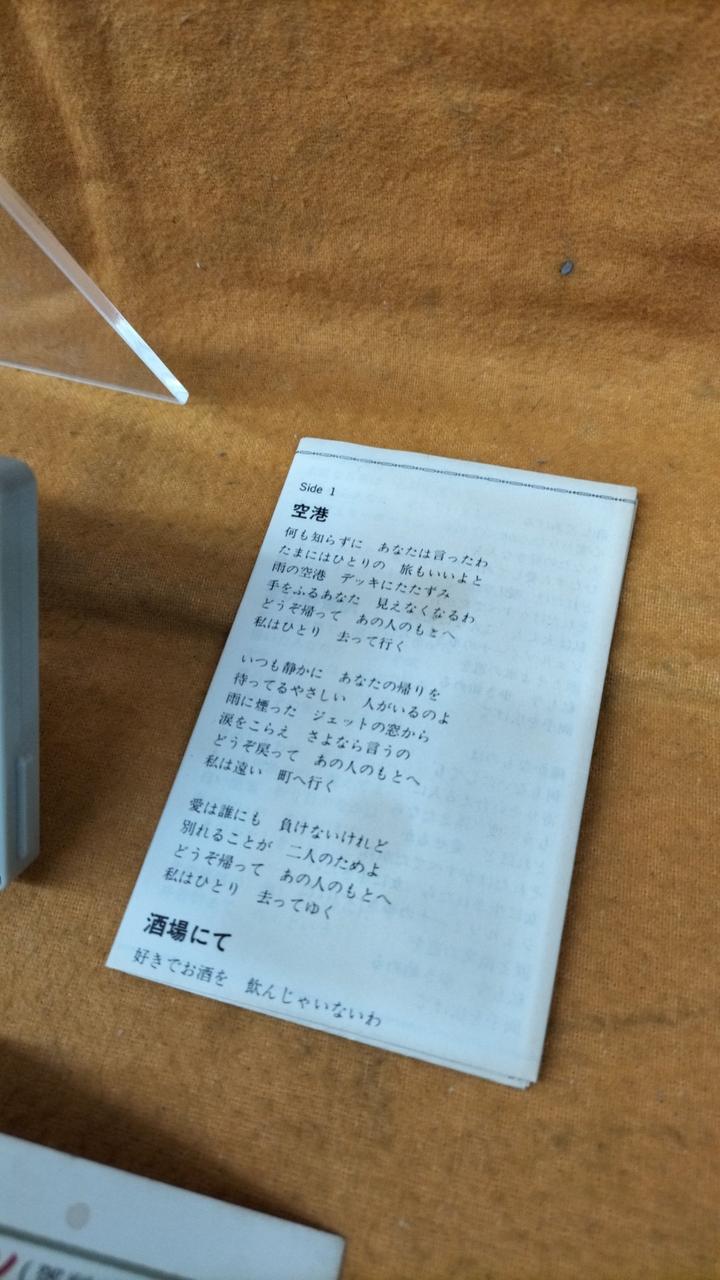 Side 1
空港
何も知らずに　あなたは言ったわ
たまにはひとりの　旅もいいよと
雨の空港　デッキにたたずみ
手をふるあなた　見えなくなるわ
どうぞ帰って　あの人のもとへ
私はひとり　去って行く
いつも静かに　あなたの帰りを
待ってるやさしい　人がいるのよ
雨に煙った　ジェットの窓から
涙をこらえ　さよなら言うの
どうぞ戻って　あの人のもとへ
私は遠い　町へ行く
愛は誰にも　負けないけれど
別れることが　二人のためよ
どうぞ帰って　あの人のもとへ
私はひとり　去ってゆく
酒場にて
好きでお酒を　飲んじゃいないわ